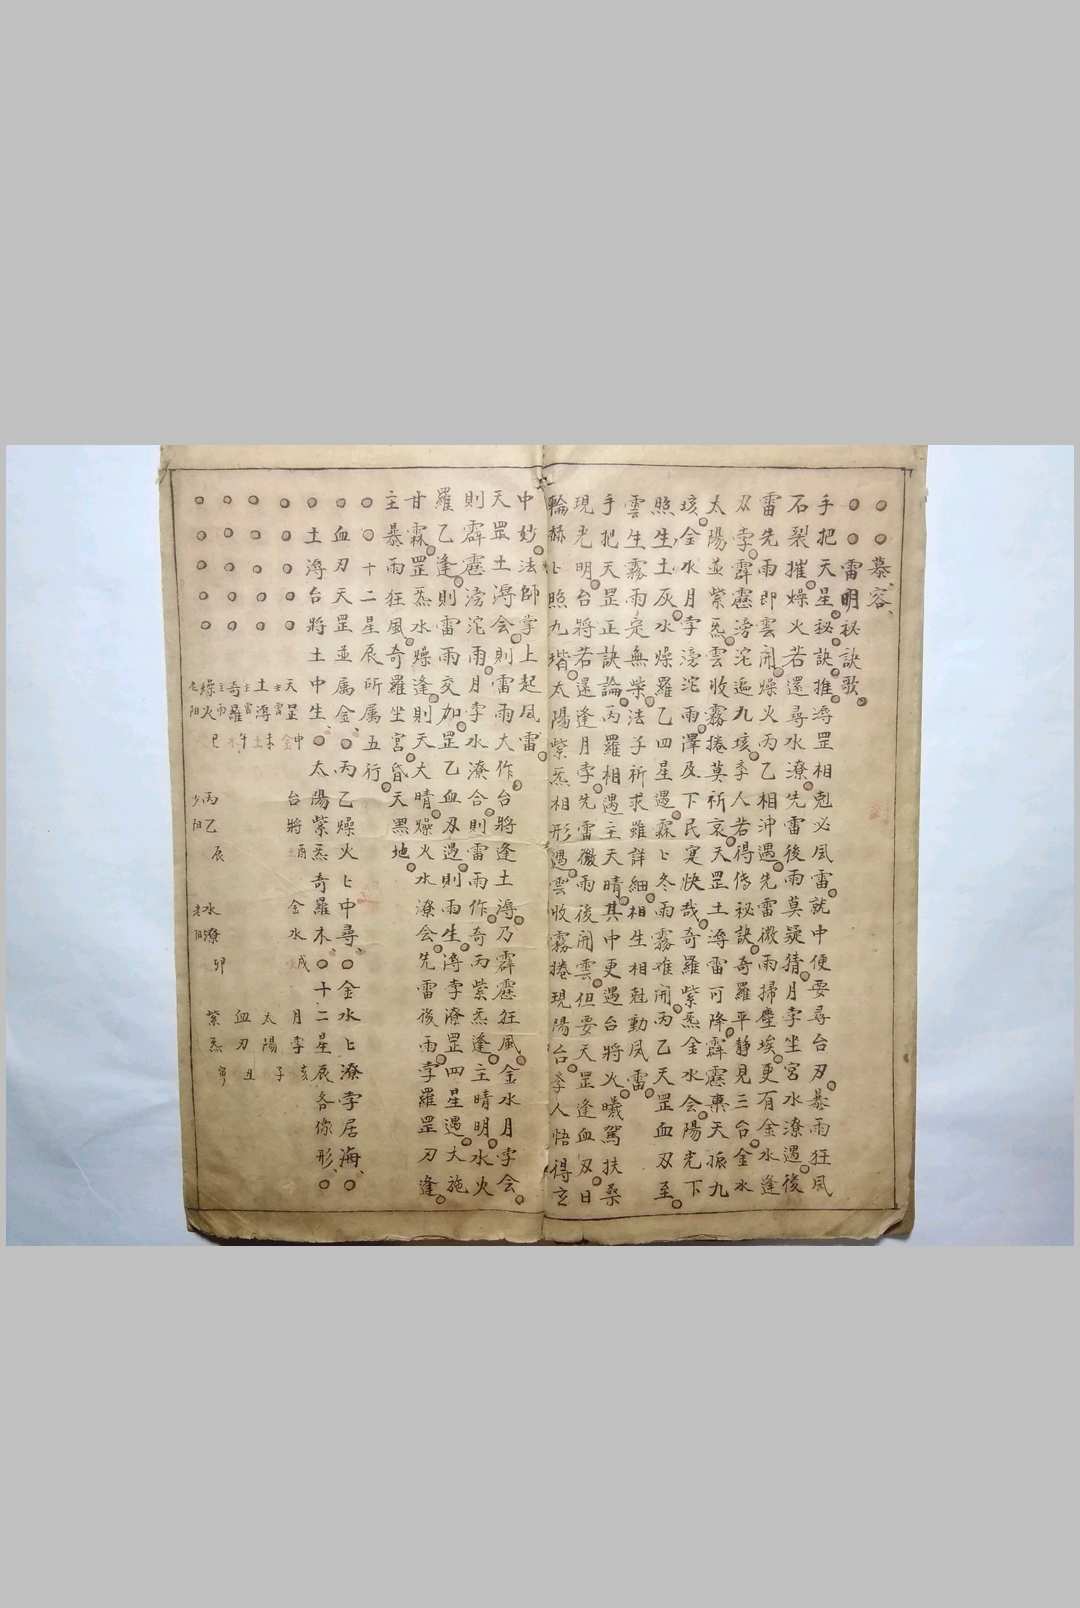 慕容
雷明祕訣歌
手把天星祕訣推潯罡相剋必風雷就中便要尋台刃暴雨狂風
石裂摧燥火若還尋水潦先雷後雨莫疑猜月孛坐宮水潦遇後
雷先雨即雲開燥火丙乙相沖遇先雷微雨掃塵埃更有金水逢
刃孛霹靂滂沱遍九垓季人若得俻祕訣奇羅平靜見三台金水
太陽並紫炁雲收霧捲莫祈哀天罡土潯雷可降霹靂棗天振九
垓金水月孛滂沱雨澤及下民寔快哉奇羅紫炁金水会陽光下
照生土灰水燥羅乙四星遇霖匕冬雨霧难開丙乙天罡血刃至
雲生霧雨定無柴法子祈求雖詳細相生相尅動風雷
手把天罡正訣論丙羅相遇主天晴其中更遇台將火曦駕扶桑
現光明台將若還逢月孛先雷微雨後開雲但要天罡逢血刃日
輪赫匕照九堦太陽紫炁相形遇雲收霧捲現陽台季人悟得玄
中妙法師掌上起風雷
天罡土潯会則雷雨大作台將逢土潯乃霹靂狂風金水月孛会
則霹靂滂沱雨月孛水潦合則雷雨作奇丙紫炁逢主晴明水火
羅乙逢則雷雨交加罡乙血刃遇則雨生潯孛潦罡四星遇大施
甘霖罡炁水燥逢則天大晴燥火水潦会先雷後雨孛羅罡刀逢
主暴雨狂風奇羅坐宮昏天黑地
十二星辰所属五行
血刃天罡並属金丙乙燥火匕中尋金水匕潦孛居海
土潯台將土中生太陽紫炁奇羅木十二星辰各像形
天罡申金 台將酉 金水戌 月孛亥
土潯未土 太陽子
奇羅午木 血刃丑
燥火巳 丙乙辰 水潦卯 紫炁寅